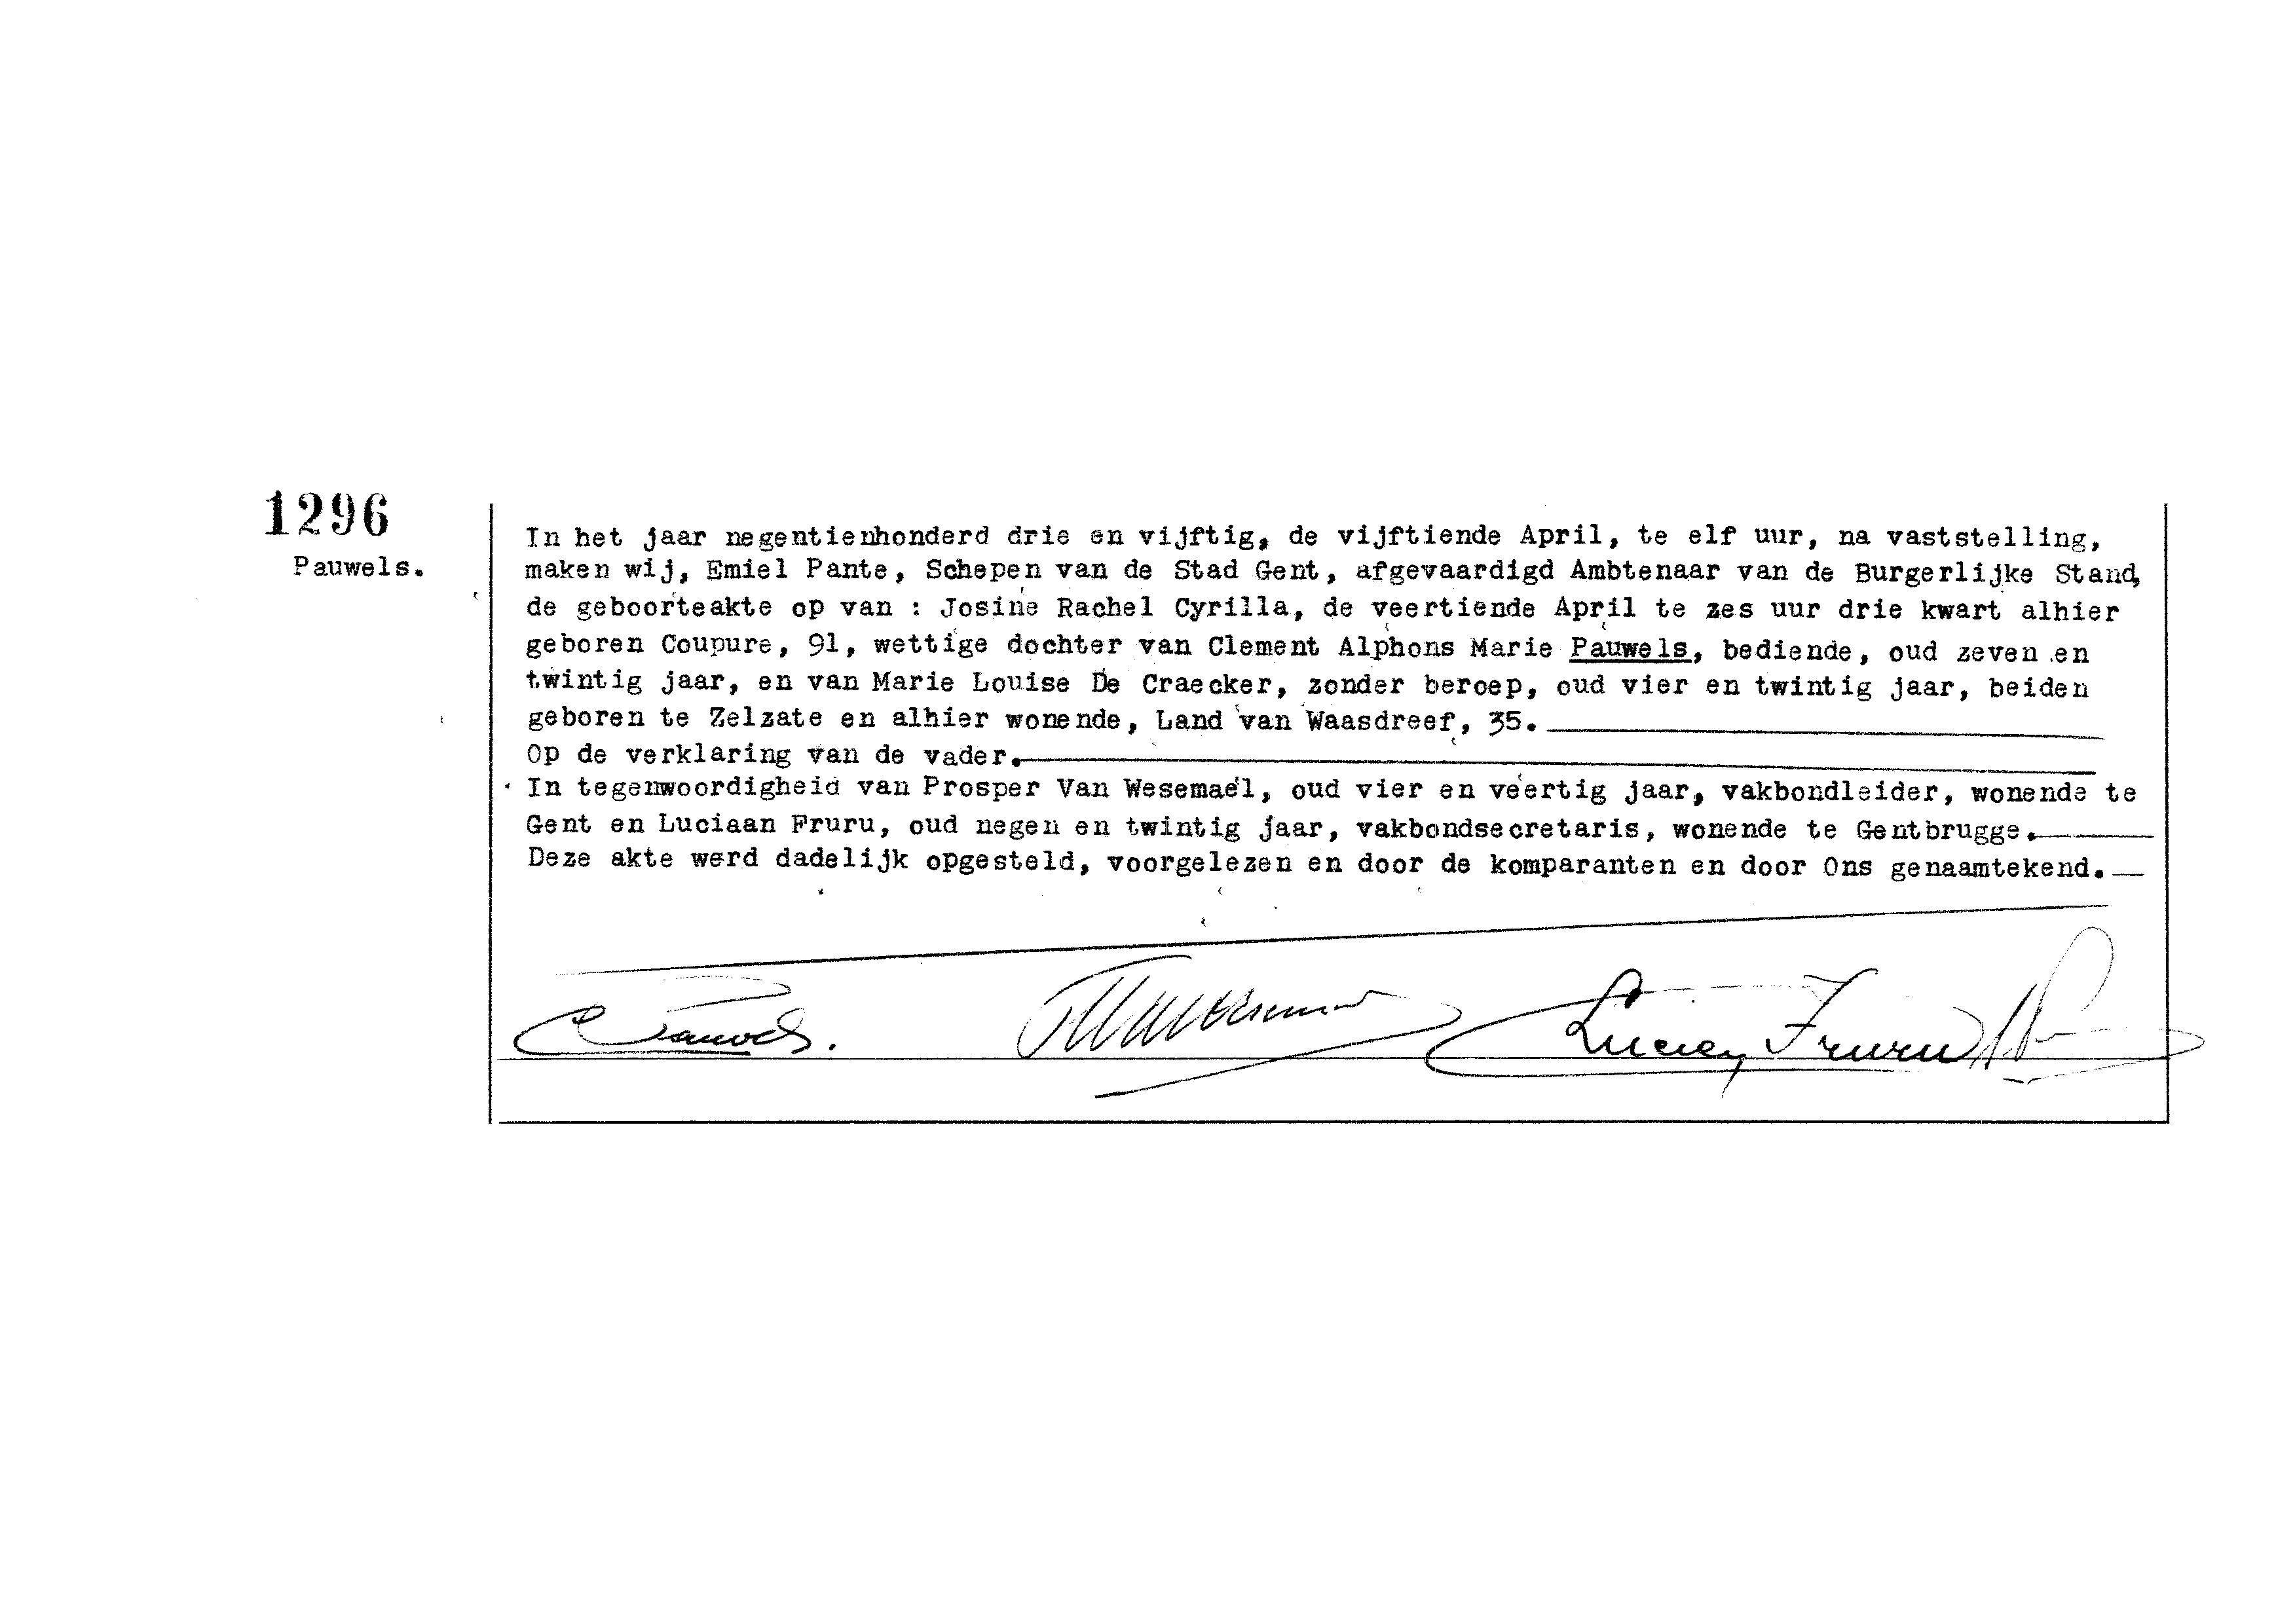 1296
Pauwels.
In het jaar negentienhonderd drie en vijftig, de vijftiende April, te elf uur, na vaststelling,
maken wij, Emiel Pante, Schepen van de Stad Gent, afgevaardigd Ambtenaar van de Burgerlijke Stand,
de geboorteakte op van : Josine Rachel Cyrilla, de veertiende April te zes uur drie kwart alhier
geboren Coupure, 91, wettige dochter van Clement Alphons Marie Pauwels, bediende, oud zeven en
twintig jaar, en van Marie Louise De Craecker, zonder beroep, oud vier en twintig jaar, beiden
geboren te Zelzate en alhier wonende, Land van Waasdreef, 35.
Op de verklaring van de vader.
In tegenwoordigheid van Prosper Van Wesemael, oud vier en veertig jaar, vakbondleider, wonende te
Gent en Luciaan Fruru, oud negen en twintig jaar, vakbondsecretaris, wonende te Gentbrugge.
Deze akte werd dadelijk opgesteld, voorgelezen en door de komparanten en door Ons genaamtekend.
C Pauwels. Lucien Fruru